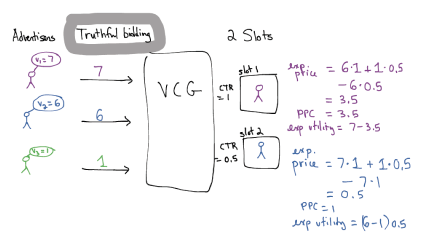 Advertisers
Truthful bidding
2 Slots
v₁=7
7
v₂=6
6
v₃=1
1
VCG
slot 1
CTR
=1
slot 2
CTR
=
0.5
exp.
price = 6·1+1·0,5
-6·0.5
= 3.5
PPC = 3.5
exp utility = 7-3.5
exp.
price = 7·1+1·0,5
- 7·1
= 0.5
PPC = 1
exp utility = (6-1)0.5